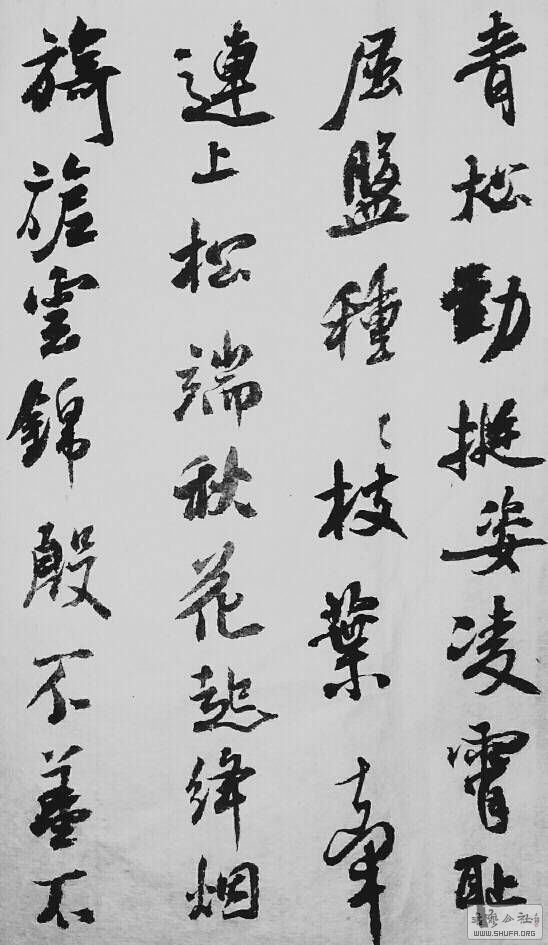 青松勁挺姿凌霄耻
屈盤種々枝葉牽
連上松端秋花起絳烟
旖旎雲錦殷不羞不
书艺公社
WWW.SHUFA.ORG